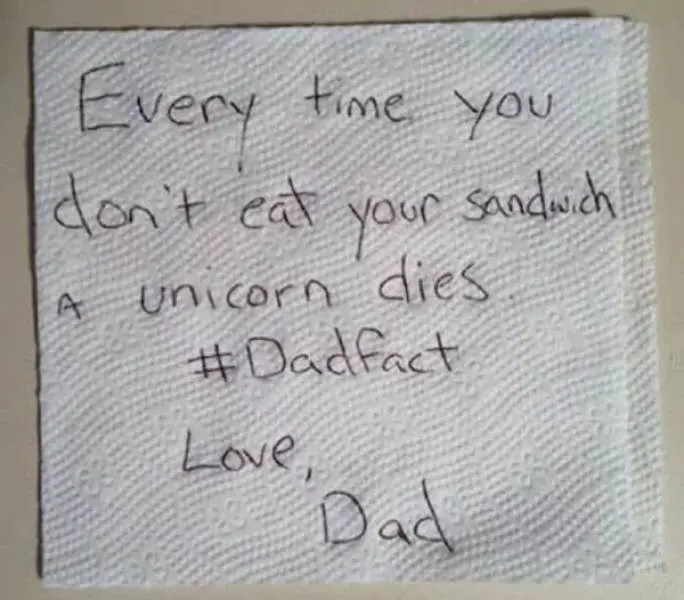 Every time you
don't eat your sandwich
A unicorn dies.
#Dadfact
Love,
Dad